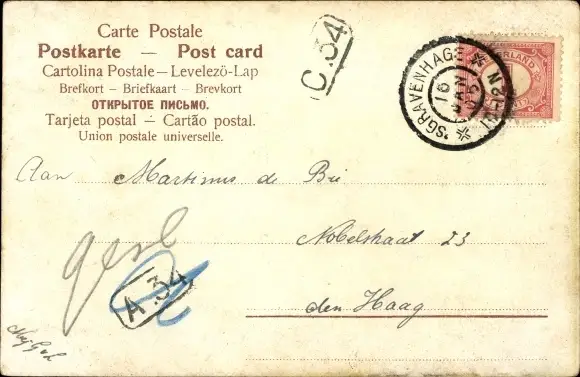 Carte Postale
Postkarte — Post card
Cartolina Postale — Levelezö-Lap
Brefkort — Briefkaart — Brevkort
ОТКРЫТОЕ ПИСЬМО.
Tarjeta postal — Cartão postal.
Union postale universelle.
C 34
'SGRAVENHAGE
16
JAN
05
11-12N
Aan Martinus de Bie
Nobelstraat 23
den Haag
A 34